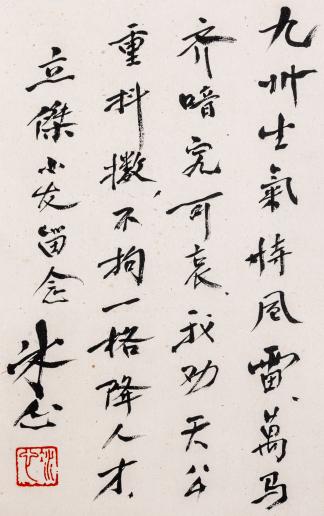 九州生氣恃風雷、萬马
齐喑究可哀、我劝天公
重抖擞、不拘一格降人才、
立傑小友留念
冰心
冰心